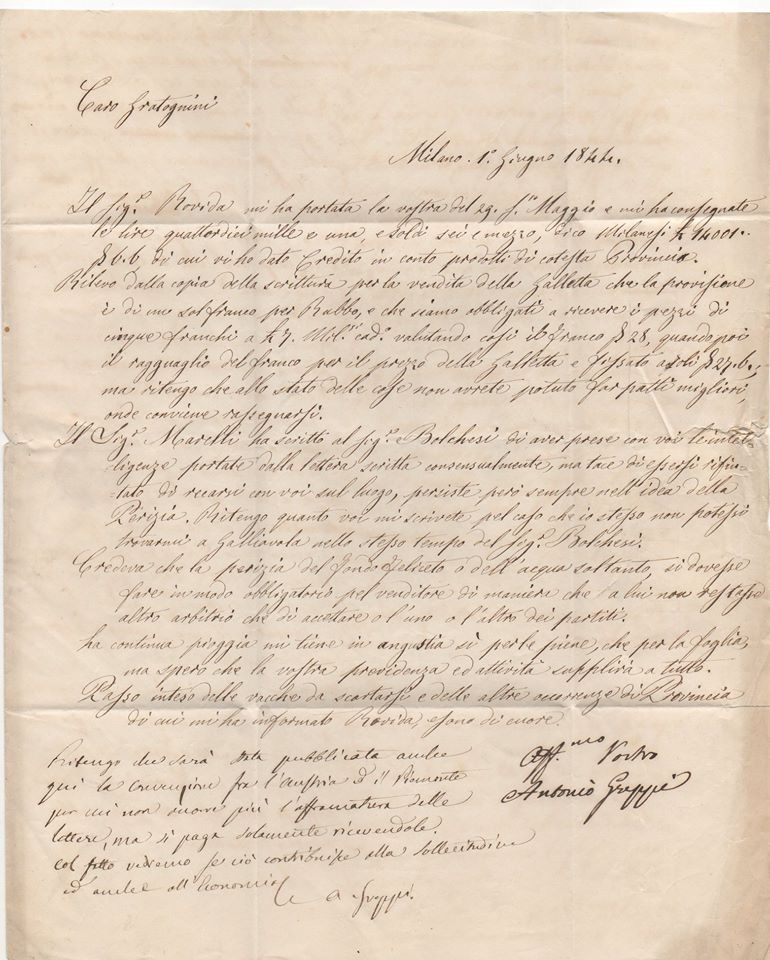 Caro Gratognini
Milano. 1.º Giugno 1844.
Il Sig.r Rovida mi ha portata la vostra del 29. s.to Maggio e mi ha consegnate
le lire quattordici mille e una, e soldi sei e mezzo, dico Milanesi £ 14001..
§ 6.6 di cui vi ho dato Credito in conto prodotti di cotesta Provincia.
Rilevo dalla copia della scrittura per la vendita della Galletta che la provisione
è di un sol franco per Rubbo, e che siamo obbligati a ricevere i pezzi di
cinque franchi a £ 7. Mil.si cad.º valutando così il franco § 28, quando poi
il ragguaglio del franco per il prezzo della Galletta è fissato a soli § 27.6.;
ma ritengo che allo stato delle cose non avrete potuto far patti migliori,
onde conviene rassegnarsi.
Il Sig.r Marelli ha scritto al Sig.r Bolchesi di aver prese con voi le intel-
ligenze portate dalla lettera scritta consensualmente, ma tace di essersi rifiu-
tato di recarsi con voi sul luogo, persiste però sempre nell'idea della
Perizia. Ritengo quanto voi mi scrivete pel caso che io stesso non potessi
trovarmi a Galliavola nello stesso tempo del Sig.r Bolchesi.
Credeva che la perizia del fondo o dell'acqua soltanto, si dovesse
fare in modo obbligatorio pel venditore di maniera che a lui non restasse
altro arbitrio che di accettare o l'uno o l'altro dei partiti.
La continua pioggia mi tiene in angustia sì per le piene, che per la foglia,
ma spero che la vostra previdenza ed attività supplirà a tutto.
Resto inteso delle vacche da scartarsi e delle altre occorrenze di Provincia
di cui mi ha informato Rovida, e sono di cuore.
Aff.mo Vostro
Antonio Greppi
Ritengo che sarà stata pubblicata anche
qui la convenzione fra l'Austria ed il Piemonte
per cui non occorre più l'affrancatura delle
lettere, ma si paga solamente ricevendole.
col fatto vedremo se ciò contribuisce alla sollecitudine
ed anche all'economia
A Greppi.